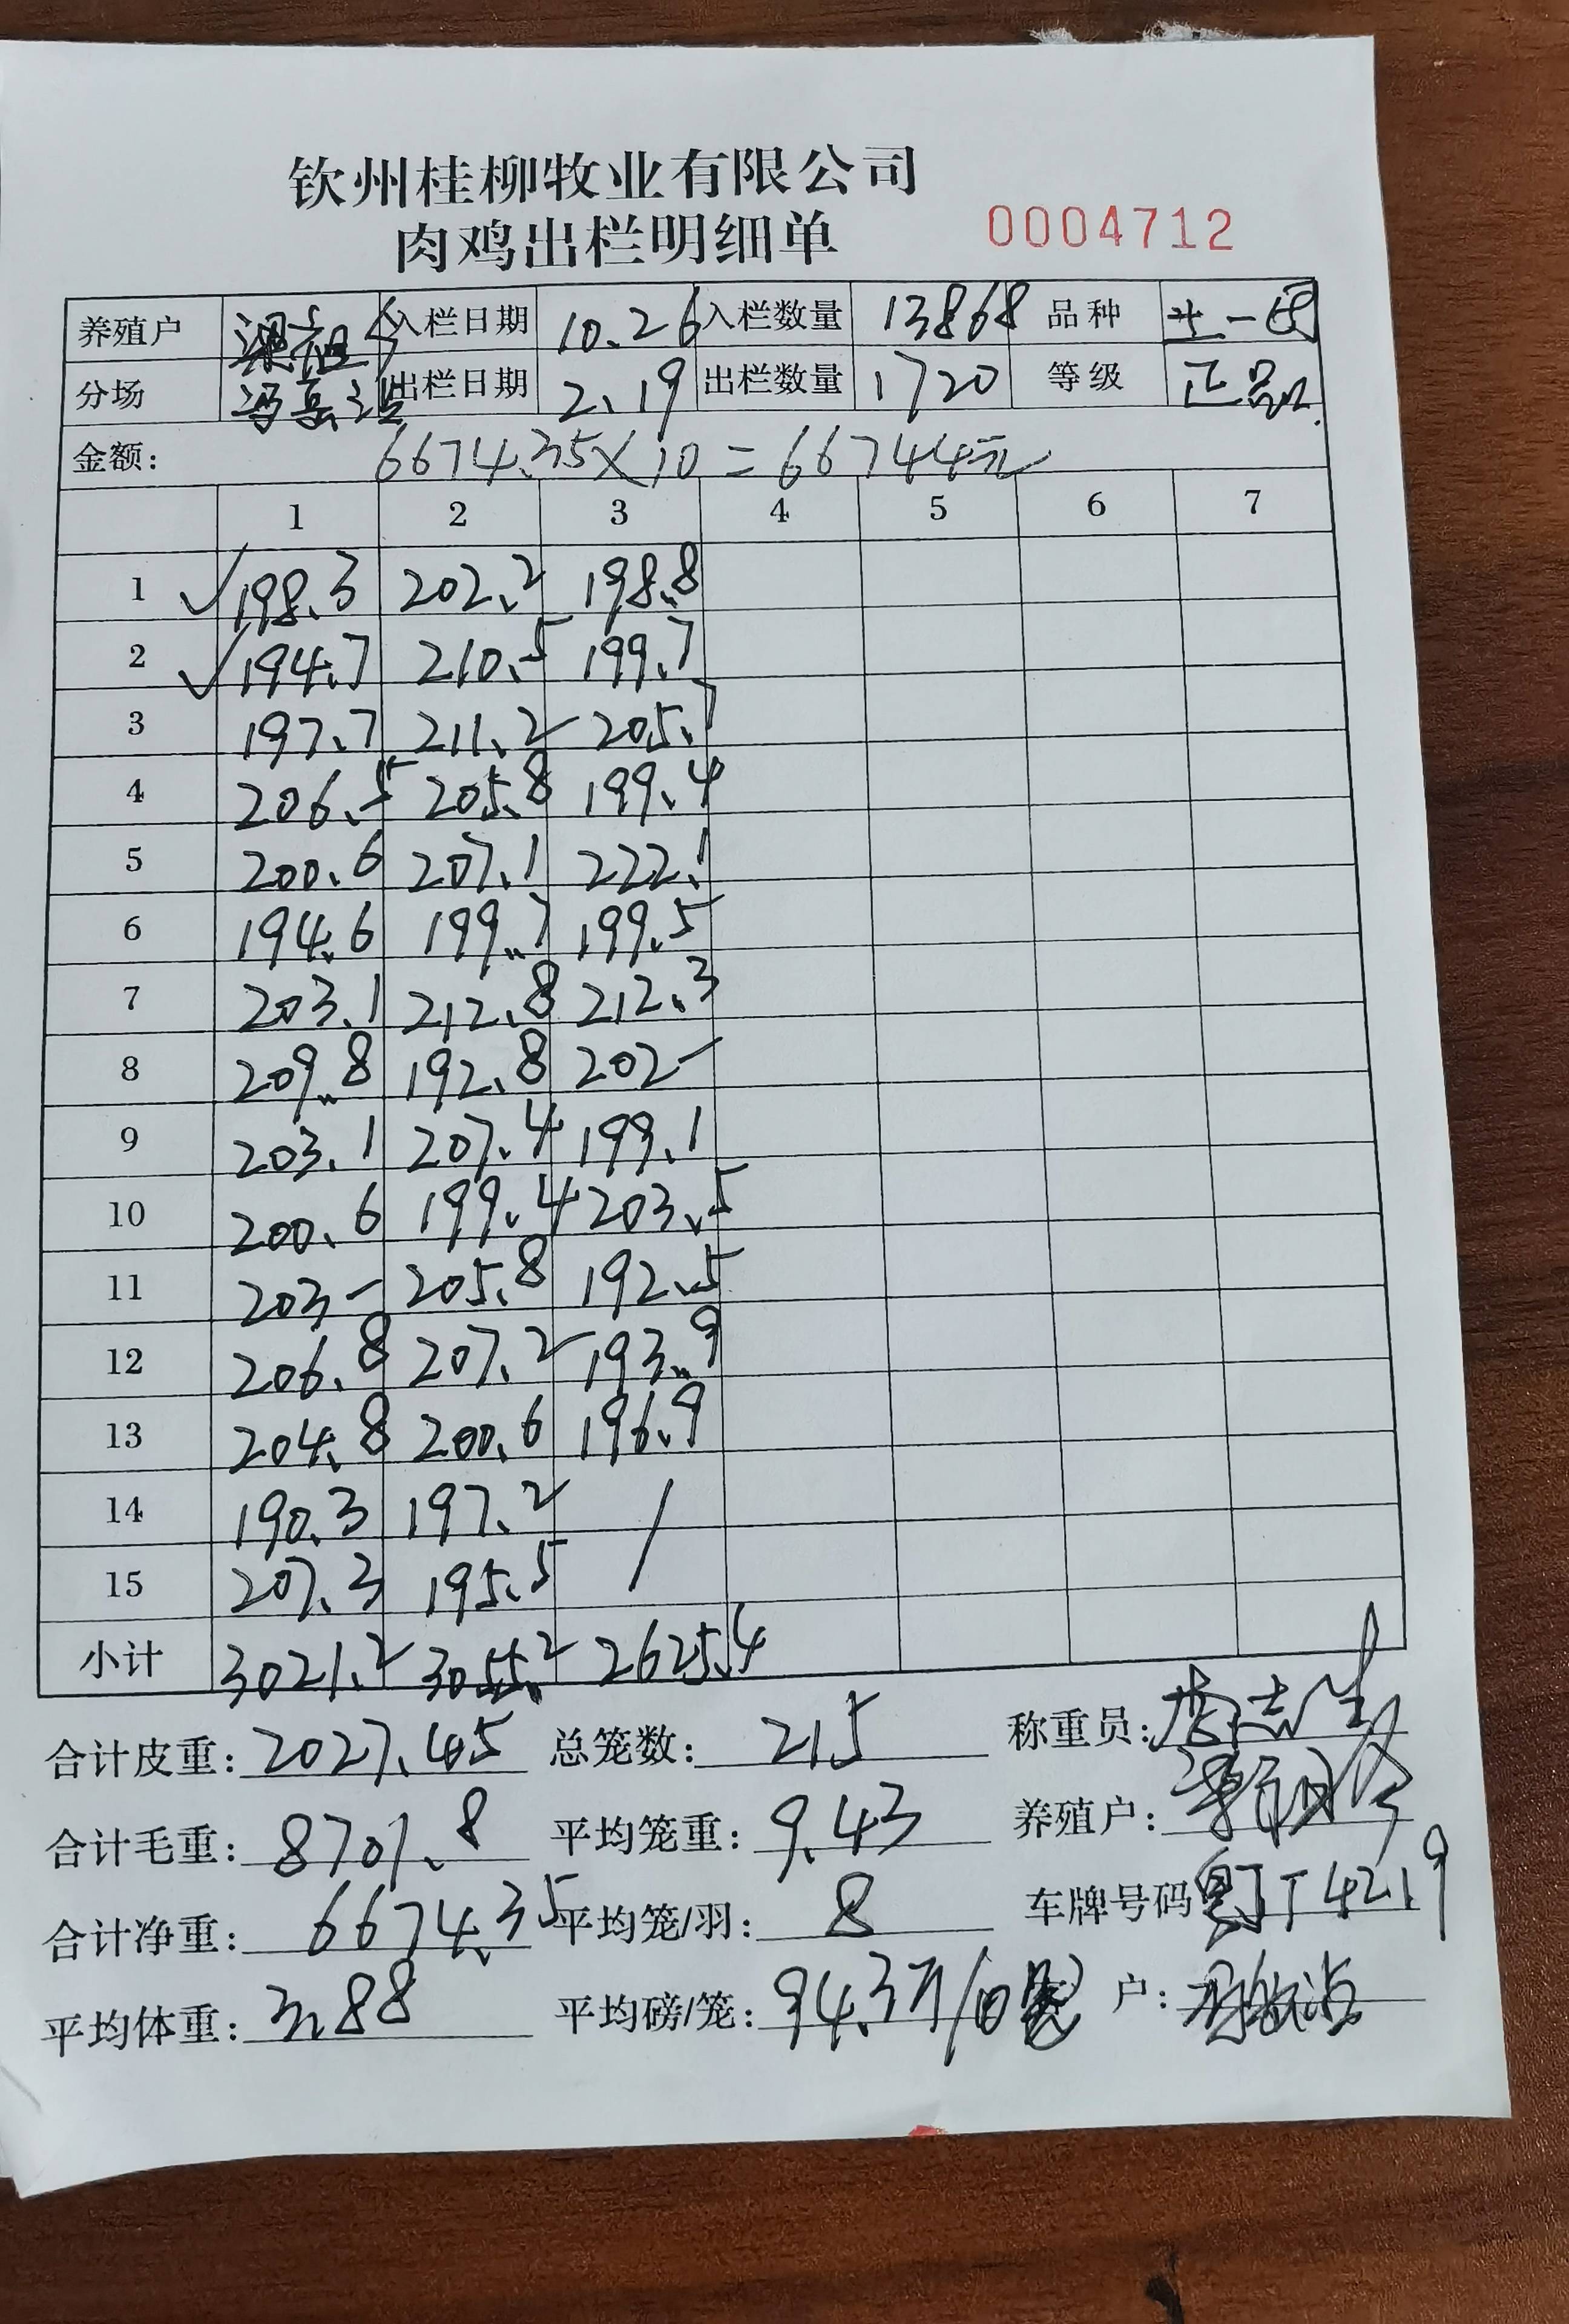 钦州桂柳牧业有限公司
肉鸡出栏明细单 0004712
养殖户 入栏日期 10.26 入栏数量 13868 品种
分场 出栏日期 2.19 出栏数量 1720 等级 正品
金额: 6674.35×10=66744元
1 2 3 4 5 6 7
1 198.3 202.2 198.8
2 194.7 210.5 199.7
3 197.7 211.2 205.7
4 206.5 205.8 199.4
5 200.6 207.1 222.1
6 194.6 199.7 199.5
7 203.1 212.8 212.3
8 209.8 192.8 202-
9 203.1 207.4 199.1
10 200.6 199.4 203.5
11 203- 205.8 192.5
12 206.8 207.2 193.9
13 204.8 200.6 196.9
14 190.3 197.2 /
15 207.3 195.5
小计 3021.2 3055.2 2625.4
合计皮重: 2027.45 总笼数: 215 称重员:
合计毛重: 8701.8 平均笼重: 9.43 养殖户:
合计净重: 6674.35 平均笼/羽: 8 车牌号码
平均体重: 3.88 平均磅/笼: 94.3 户: